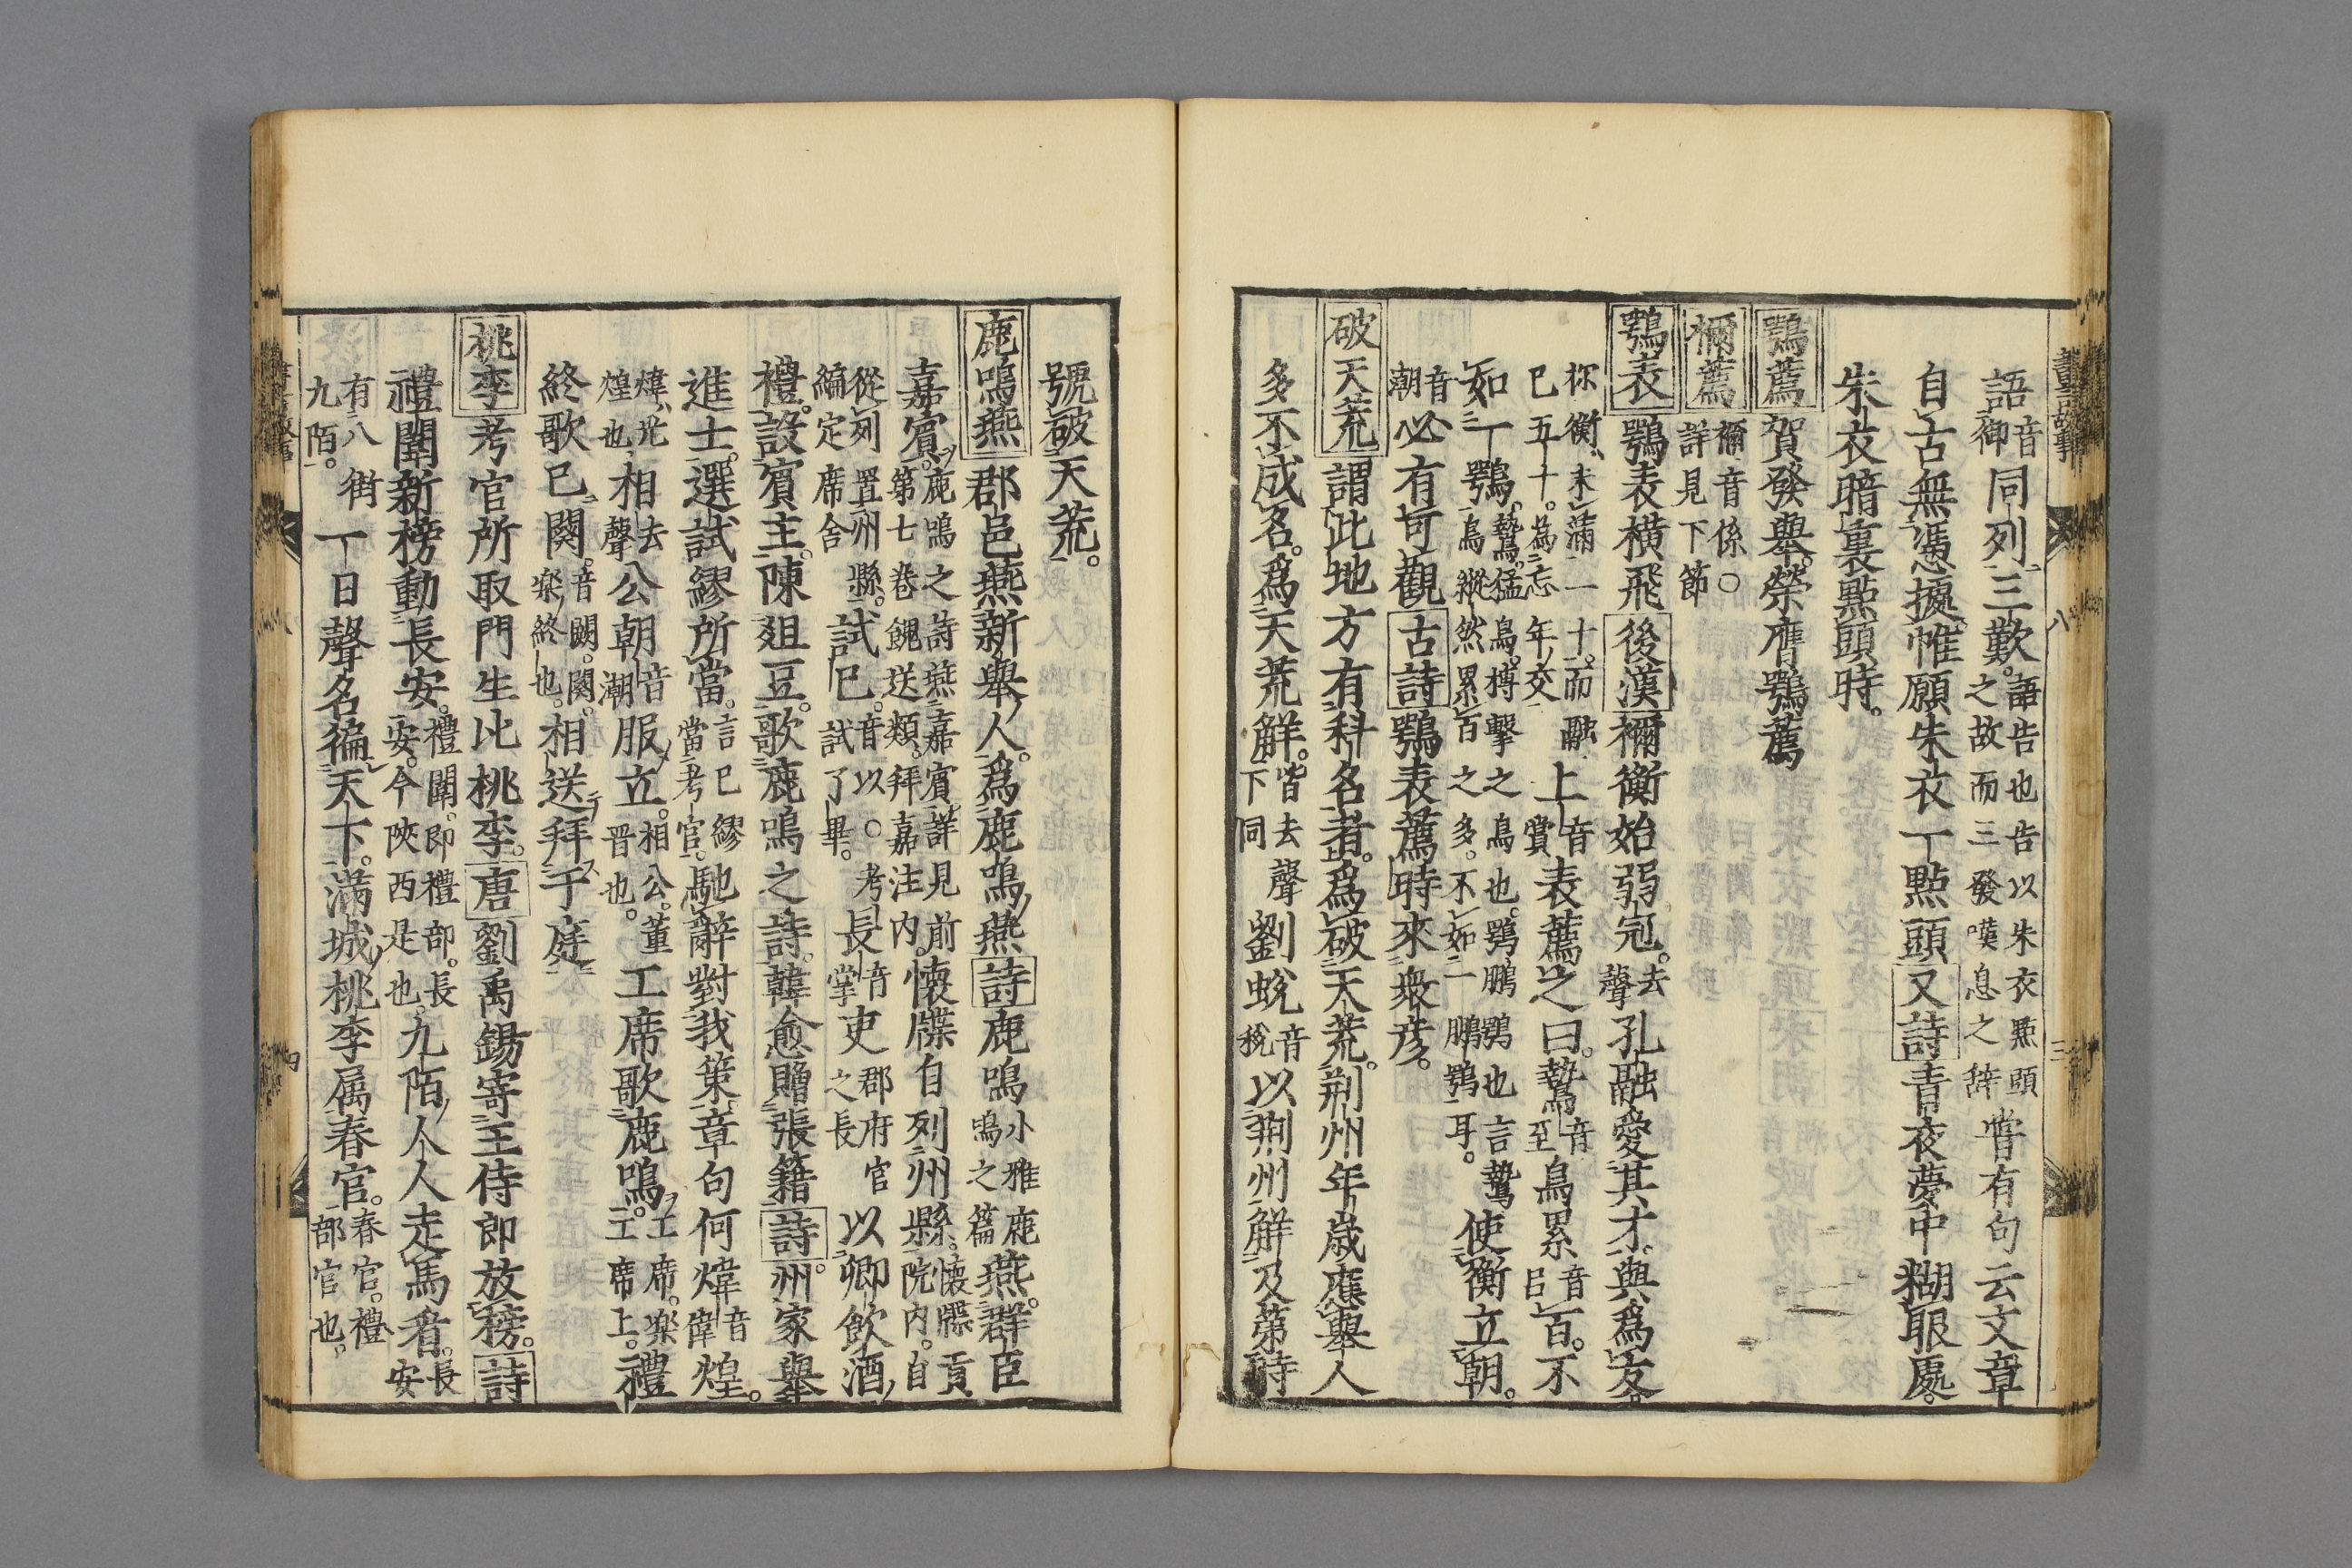 語音御同列三歎語告也告以朱衣點頭之故而三發嘆息之辞嘗有句云文章
自古無憑據惟願朱衣一點頭又詩青夜夢中糊眼處
朱衣暗裏點頭時
鶚薦賀發舉榮膺鶚薦
禰薦禰音係○詳見下節
鶚表鶚表橫飛後漢禰衡始弱冠去聲孔融愛其才與為友
祢衡未滿二十而融已五十為忘年交上音賞表薦之曰鷙音至鳥累音呂百不
如一鶚鷙猛鳥搏擊之鳥也鶚鵬鳥縱然累百之多不如一鶚也言鷙鵬鶚耳使衡立朝
音潮必有可觀古詩鶚表薦時來衆彦
破天荒謂此地方有科名者為破天荒荆州年歲應舉人
多不成名為天荒解皆去聲下同劉蛻音稅以荆州解及第時
號破天荒
鹿鳴燕郡邑燕新舉人為鹿鳴燕詩鹿鳴小雅鹿鳴之篇燕群臣
嘉賓鹿鳴之詩燕嘉賓詳見前第七卷餽送類拜嘉注内懷牒自列州縣懷牒貢院内自
從列置州縣編定席舍試已音以○考試了畢長音掌吏郡府官之長以卿飲酒
禮設賓主陳爼豆歌鹿鳴之詩韓愈贈張籍詩州家舉
進士選試繆所當言已繆當考官馳辭對我策章句何煒音偉煌
煒光煌也相去聲公朝音潮服立相公董晋也工席歌鹿鳴工席樂工席上禮
終歌已闋音闕闋樂終也相送拜于庭
桃李考官所取門生比桃李唐劉禹錫寄王侍郎放榜詩
禮闈新榜動長安禮闈即禮部長安今陝西是也九陌人人走馬看長安
有八街九陌一日聲名徧天下滿城桃李属春官春官禮部官也